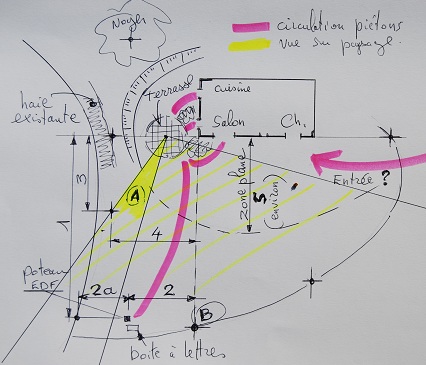 Noyer
circulation piétons
vue sur paysage.
Terrasse
cuisine
haie
existante
Salon
Ch.
Entrée ?
A
3
1
zone plane
5
(environ)
4
poteau
EDF
2a
2
B
boîte à lettres